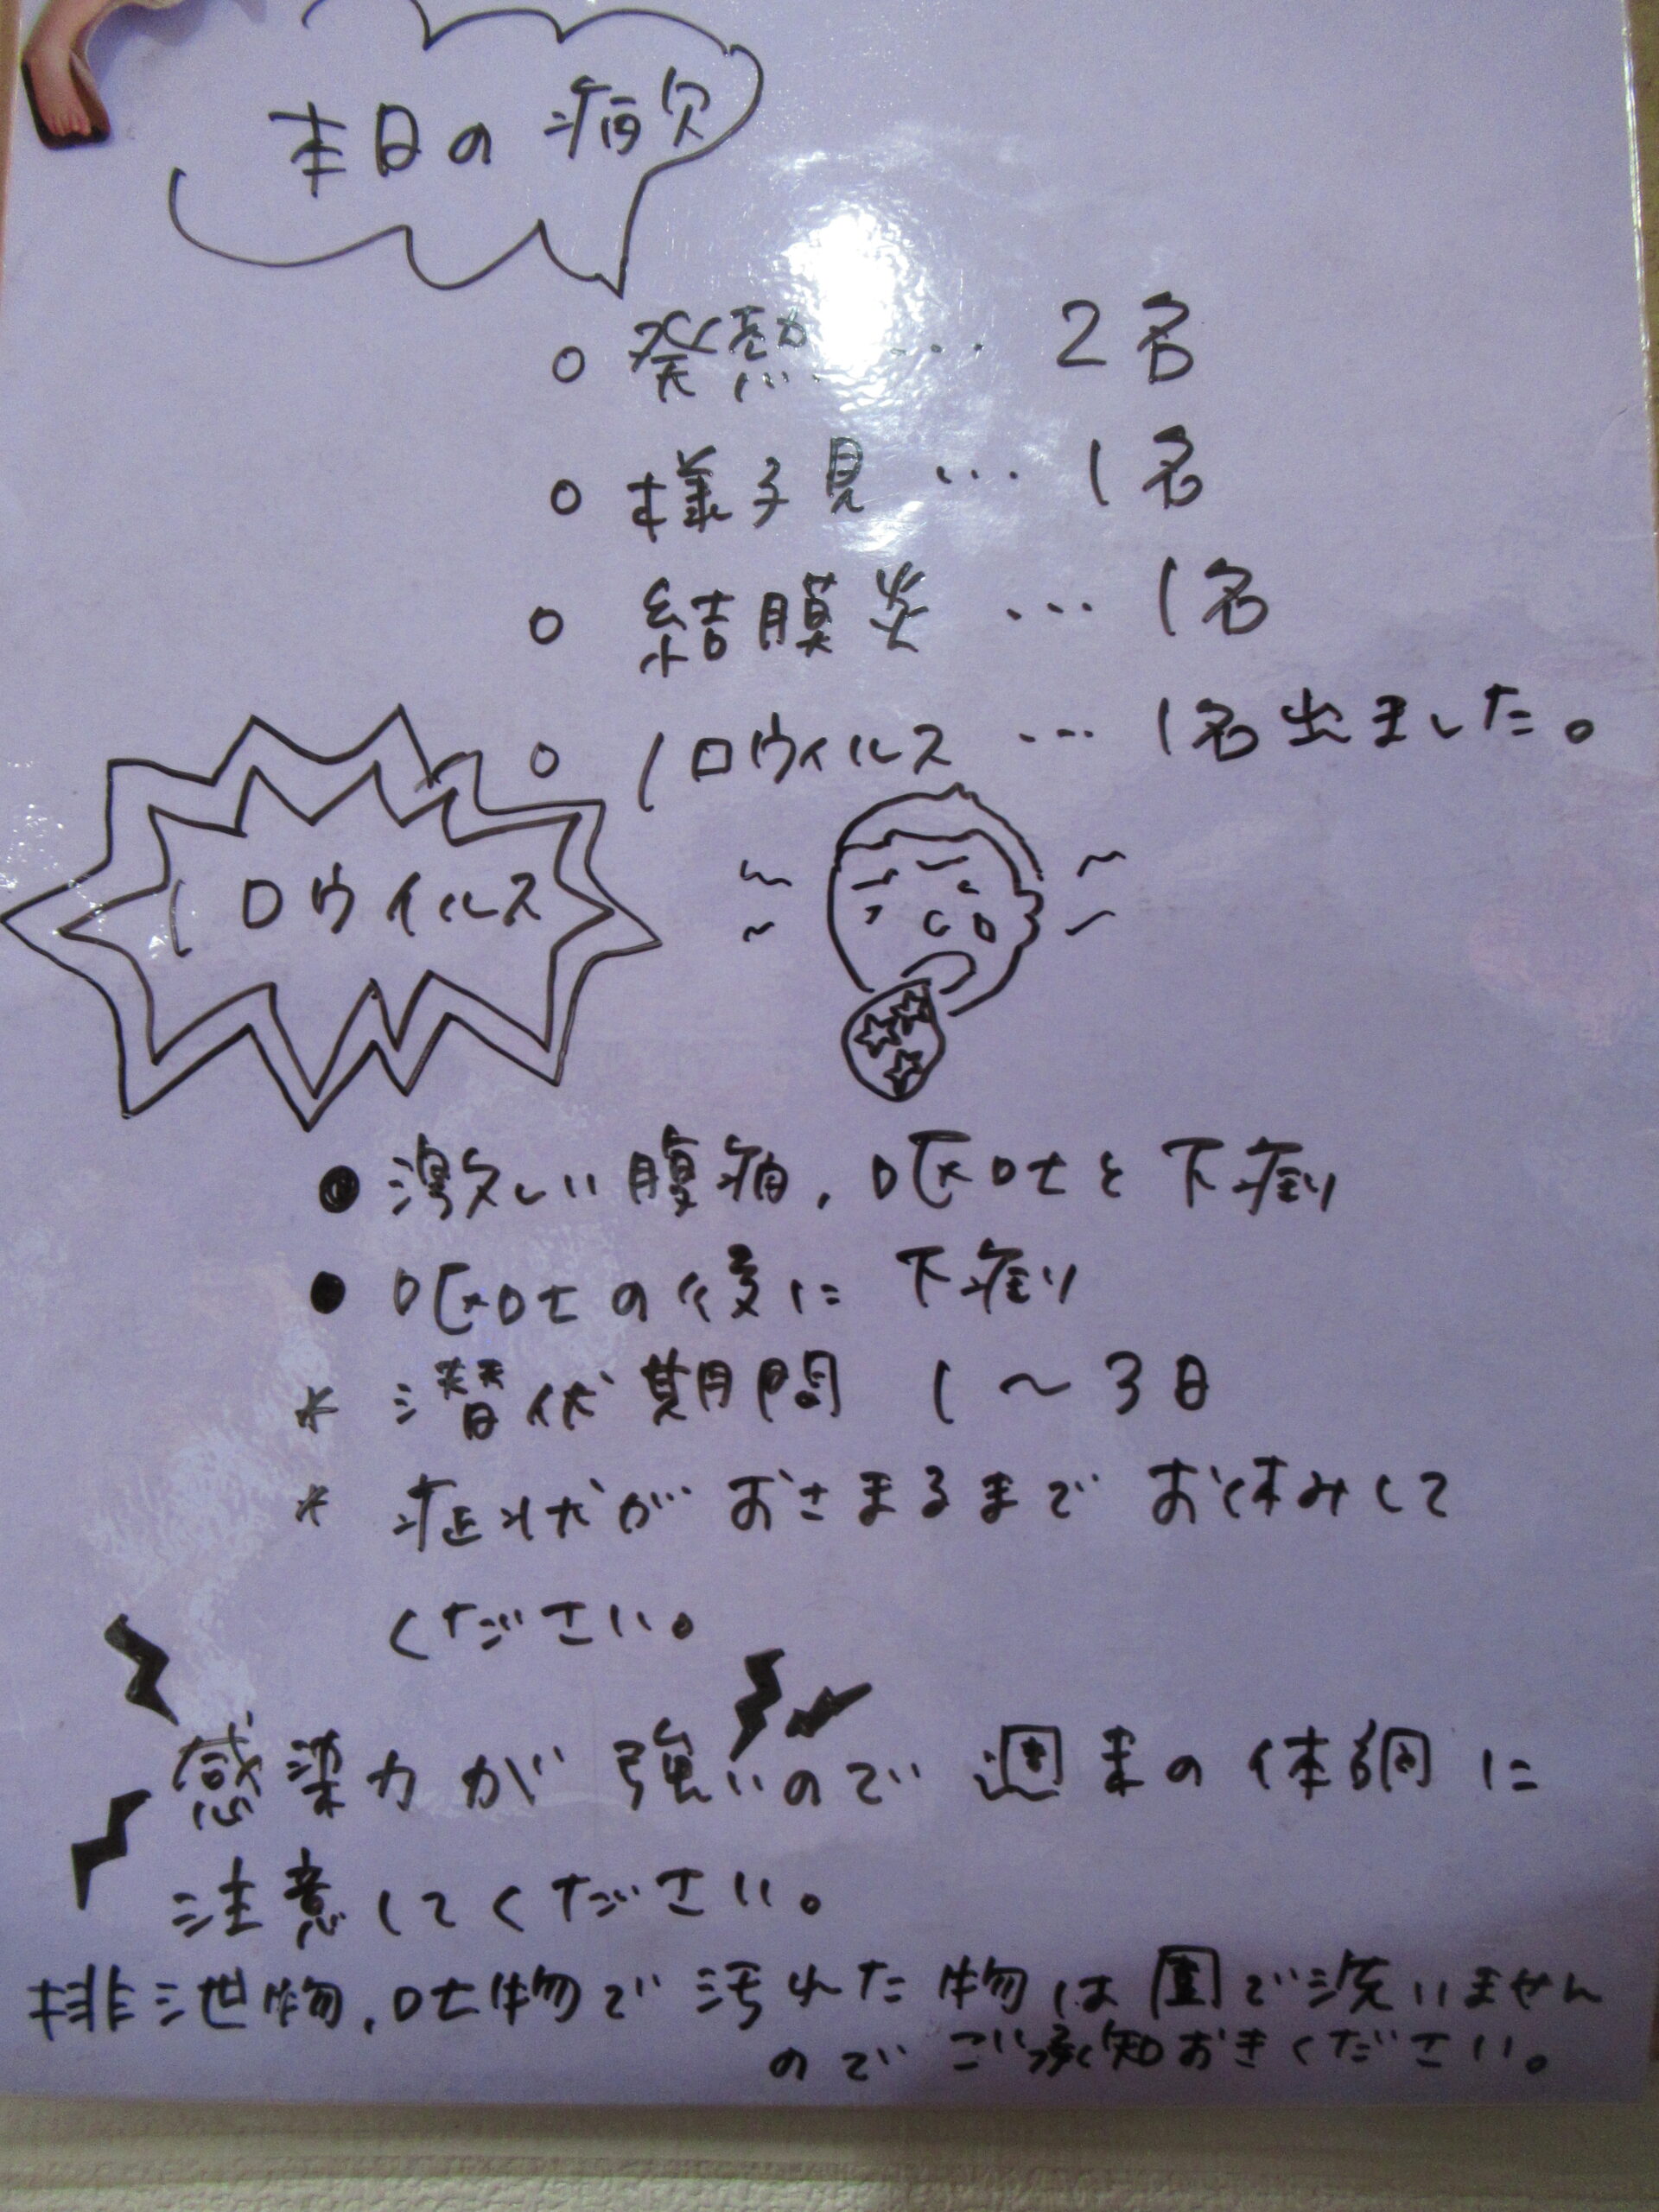 本日の病欠
○ 発熱 … 2名
○ 様子見 … 1名
○ 結膜炎 … 1名
○ ノロウィルス … 1名出ました。
ノロウイルス
● 激しい腹痛、嘔吐と下痢
● 嘔吐の後に下痢
* 潜伏期間 1〜3日
* 症状がおさまるまでお休みして
ください。
感染力が強いので週末の体調に
注意してください。
排泄物、吐物で汚れた物は園で洗いません
のでご承知おきください。